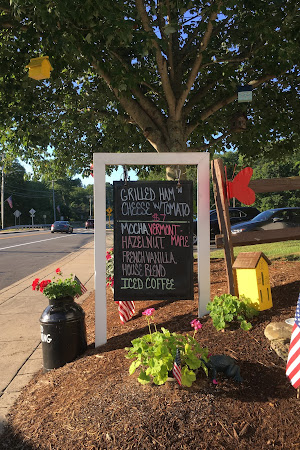 GRILLED HAM &
CHEESE W/TOMATO
$7
MOCHA VERMONT-
HAZELNUT MAPLE
FRENCH VANILLA
HOUSE BLEND
ICED COFFEE